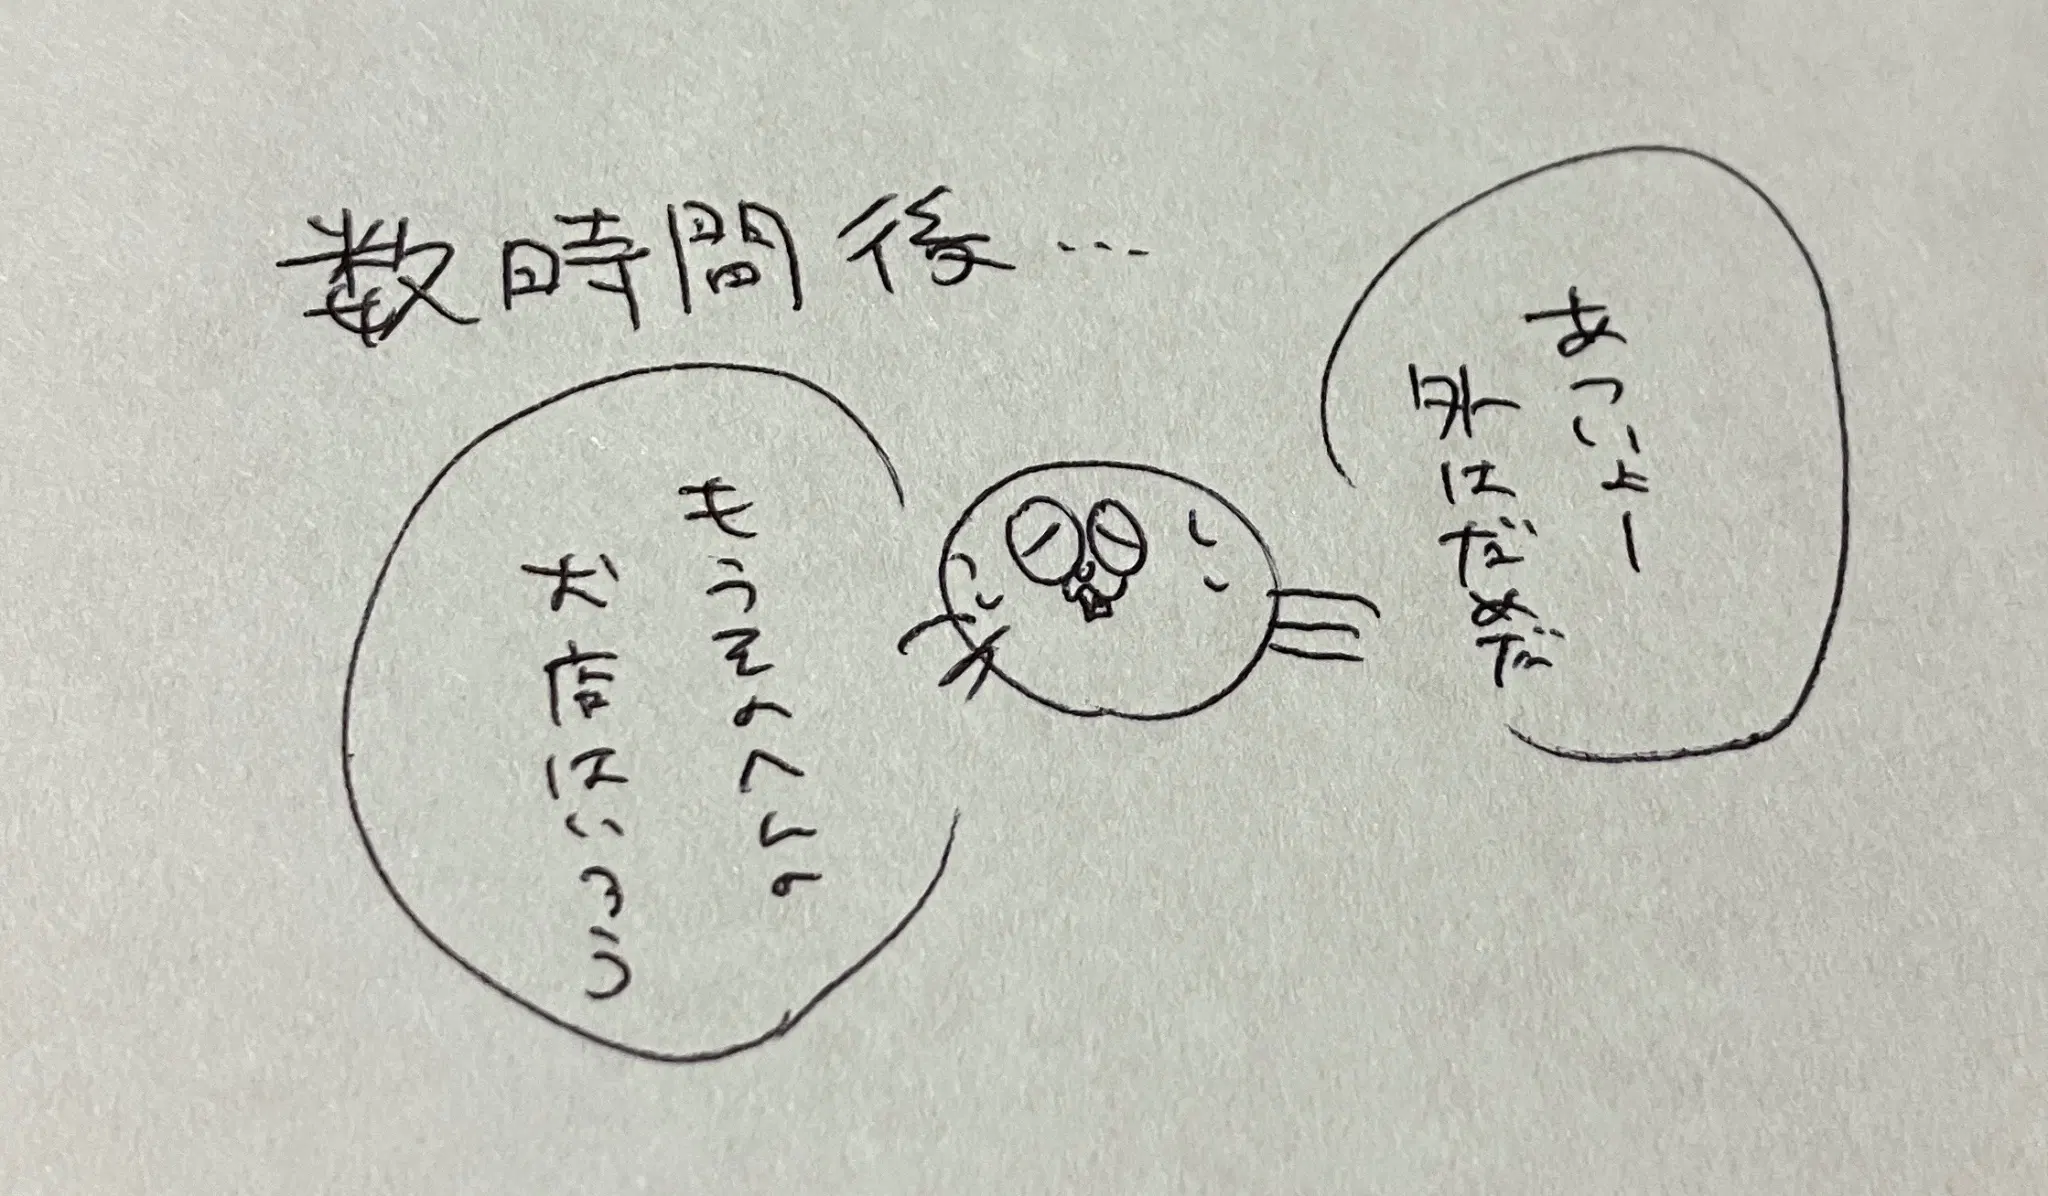 数時間後…
あついよー
外はだめだ
もうそのへんの
お店はいろう